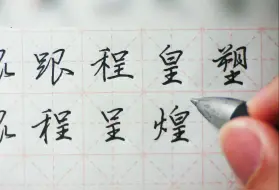 跟程皇塑
程呈煌